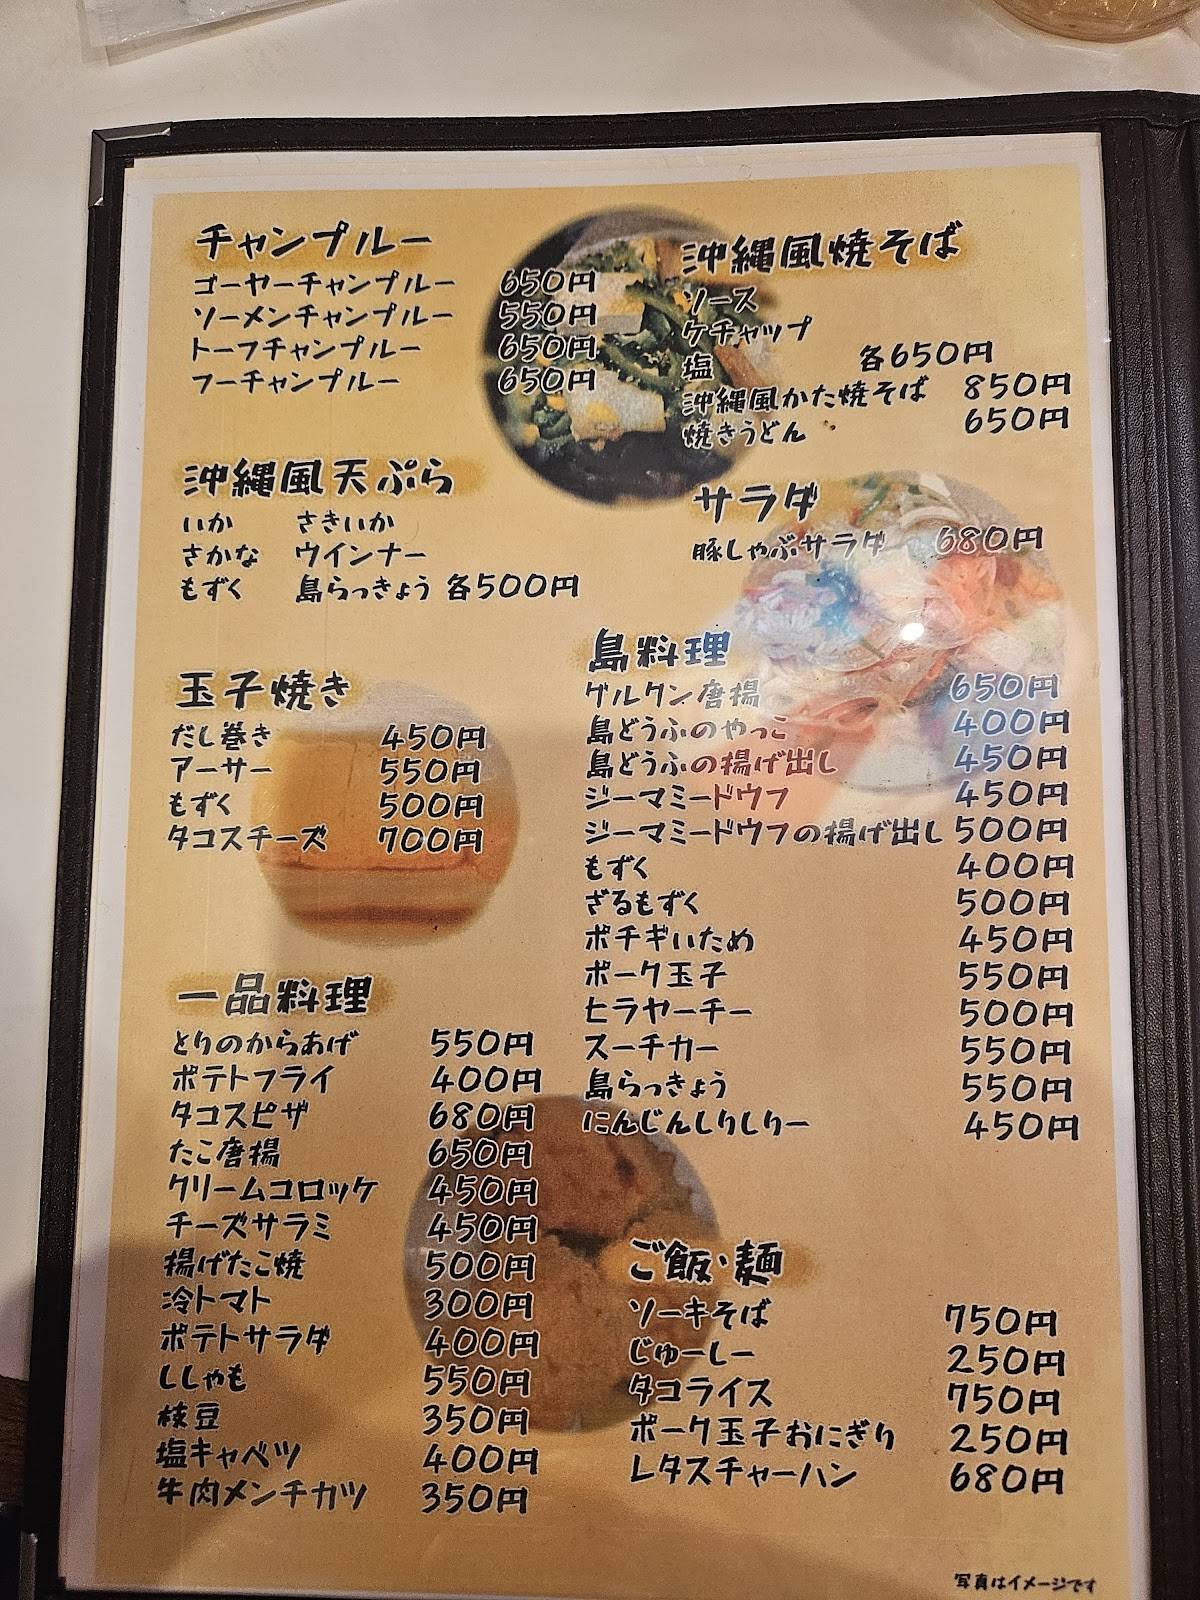 チャンプルー
ゴーヤーチャンプルー 650円
ソーメンチャンプルー 550円
トーフチャンプルー 650円
フーチャンプルー 650円
沖縄風天ぷら
いか さきいか
さかな ウインナー
もずく 島らっきょう 各500円
玉子焼き
だし巻き 450円
アーサー 550円
もずく 500円
タコスチーズ 700円
一品料理
とりのからあげ 550円
ポテトフライ 400円
タコスピザ 680円
たこ唐揚 650円
クリームコロッケ 450円
チーズサラミ 450円
揚げたこ焼 500円
冷トマト 300円
ポテトサラダ 400円
ししゃも 550円
枝豆 350円
塩キャベツ 400円
牛肉メンチカツ 350円
沖縄風焼そば
ソース
ケチャップ
塩 各650円
沖縄風かた焼そば 850円
焼きうどん 650円
サラダ
豚しゃぶサラダ 680円
島料理
グルクン唐揚 650円
島どうふのやっこ 400円
島どうふの揚げ出し 450円
ジーマミードウフ 450円
ジーマミードウフの揚げ出し 500円
もずく 400円
ざるもずく 500円
ポチギいため 450円
ポーク玉子 550円
ヒラヤーチー 500円
スーチカー 550円
島らっきょう 550円
にんじんしりしりー 450円
ご飯・麺
ソーキそば 750円
じゅーしー 250円
タコライス 750円
ポーク玉子おにぎり 250円
レタスチャーハン 680円
写真はイメージです